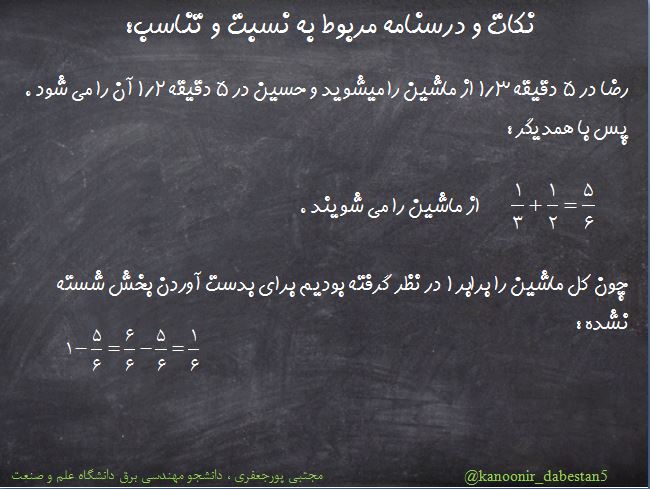 نکات و درسنامه مربوط به نسبت و تناسب:
رضا در ۵ دقیقه ۱/۳ از ماشین را میشوید و حسین در ۵ دقیقه ۱/۲ آن را می شود .
پس با همدیگر :
۱/۳ + ۱/۲ = ۵/۶ از ماشین را می شویند .
چون کل ماشین را برابر ۱ در نظر گرفته بودیم برای بدست آوردن بخش شسته
نشده :
۱ - ۵/۶ = ۶/۶ - ۵/۶ = ۱/۶
مجتبی پورجعفری ، دانشجو مهندسی برق دانشگاه علم و صنعت
@kanoonir_dabestan5